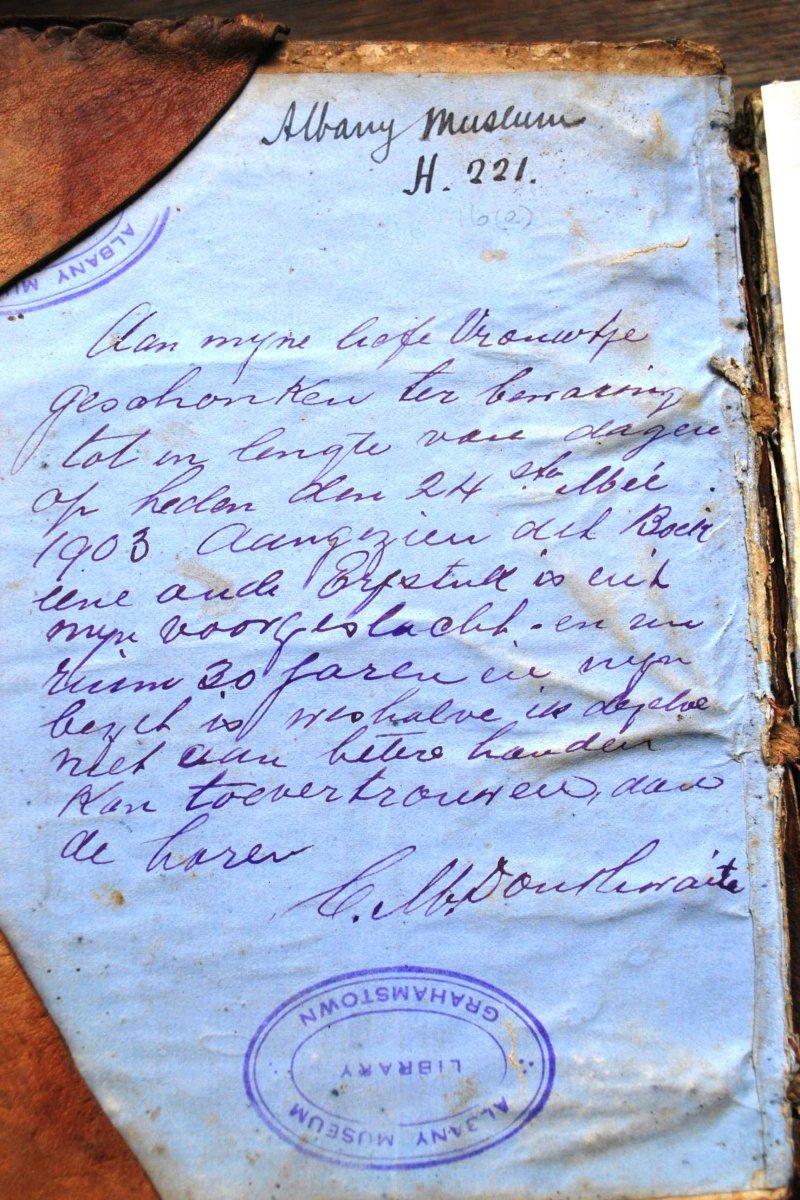 Albany Museum
H. 221.
16(a)
ALBANY MU
Aan mijne liefe Vrouwtje
geschonken ter bewaring
tot in lengte van dagen
op heden den 24 ste Mei
1903 Aangezien dit Boek
eene oude Erfstuk is uit
mijn voorgeslacht - en nu
ruim 30 Jaren in mijn
bezit is weshalve ik dezelve
niet aan betere handen
kan toevertrouwen, dan
de haren
C. M. Douthwaite
GRAHAMSTOWN
LIBRARY
ALBANY MUSEUM